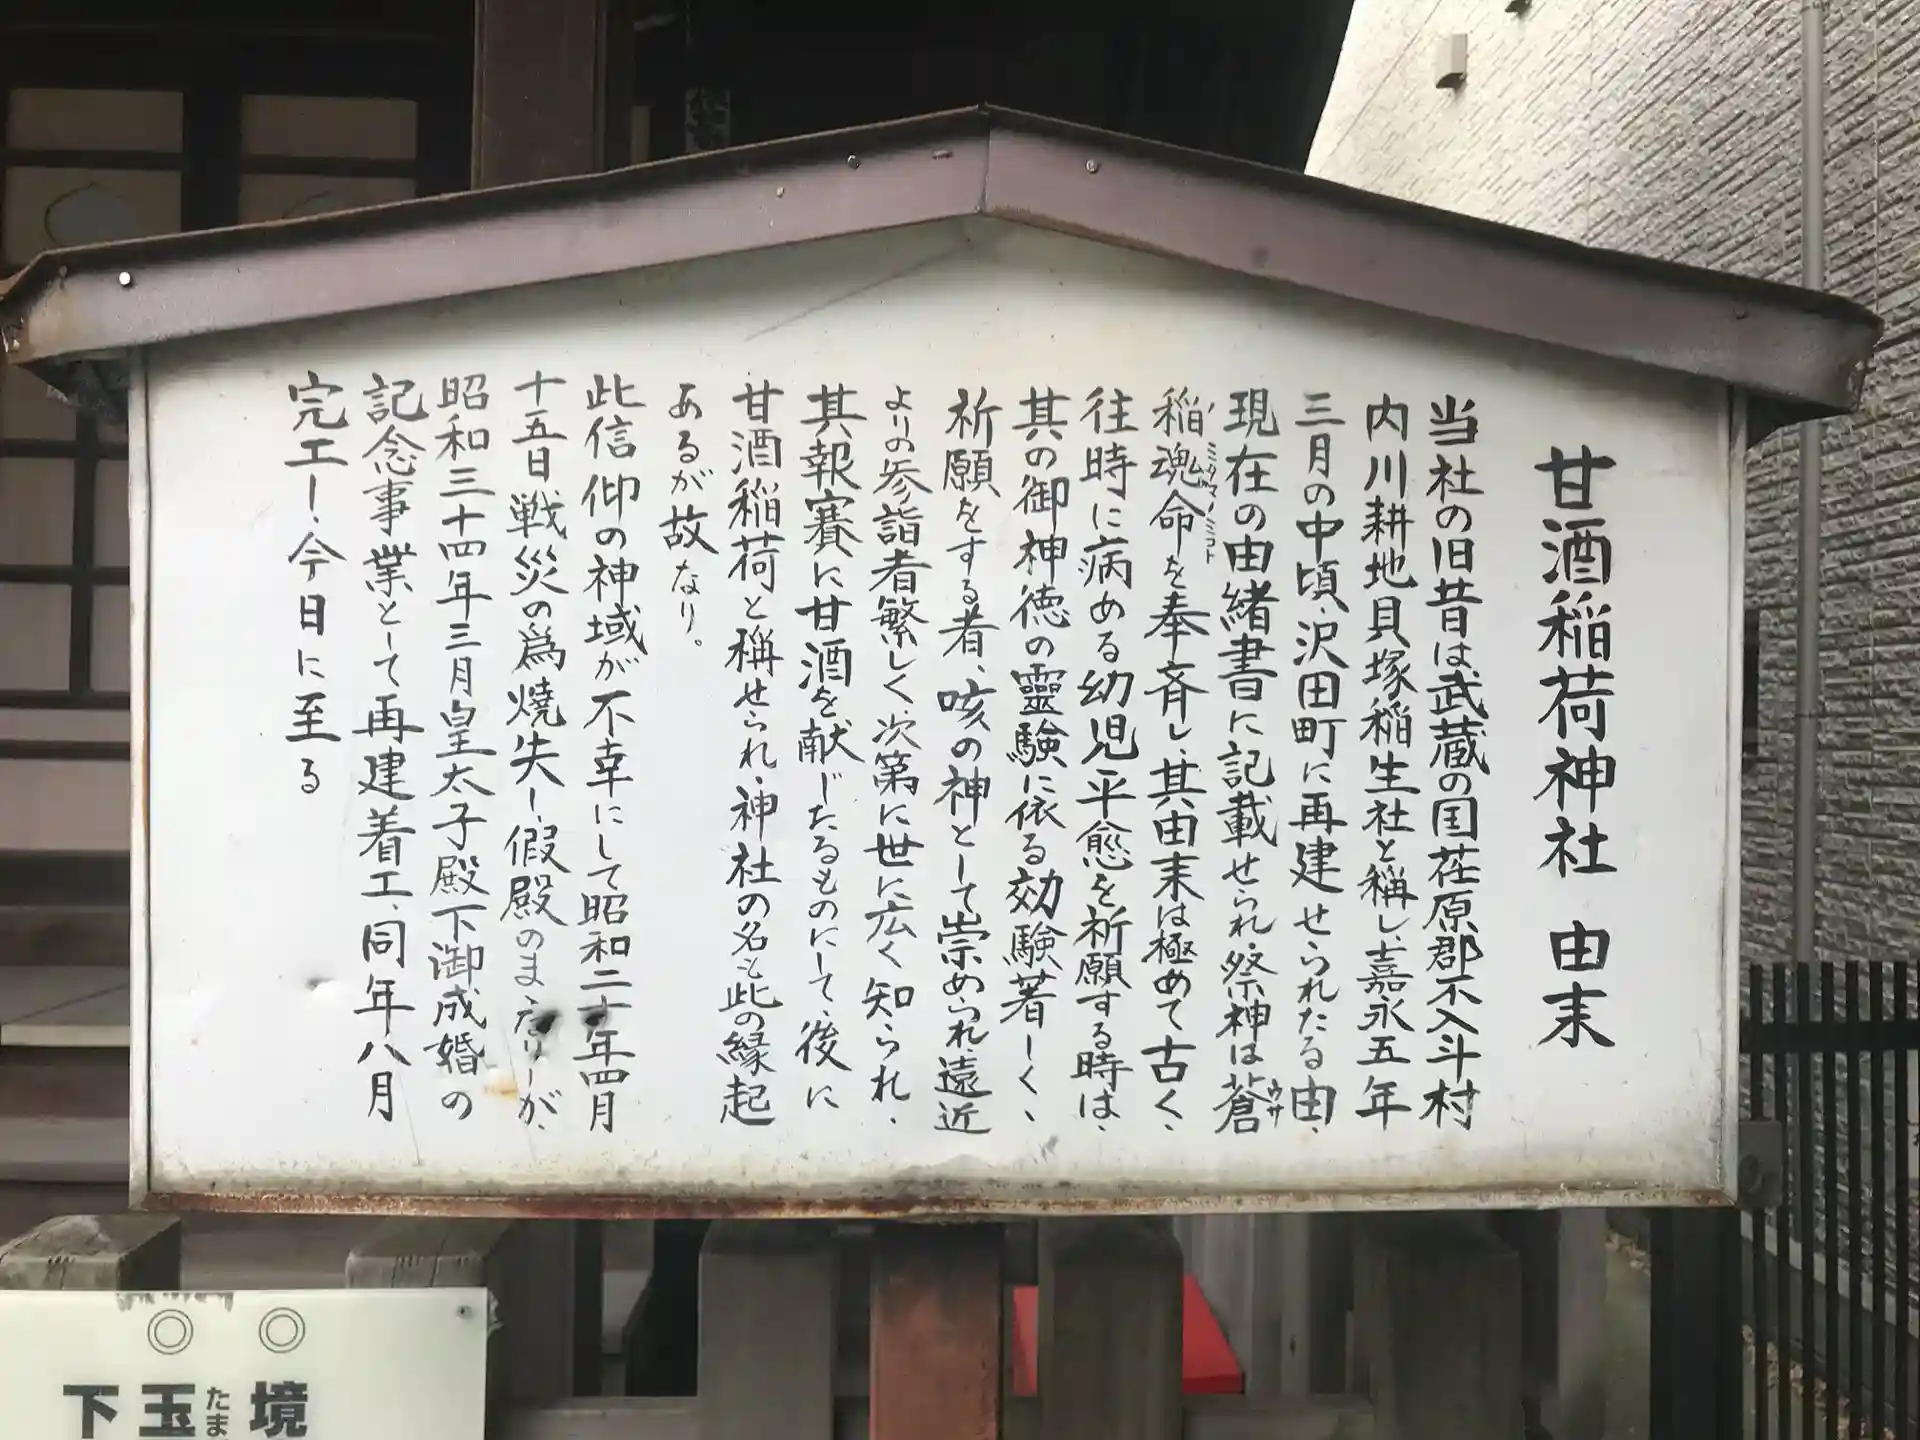 甘酒稲荷神社 由来
当社の旧昔は武蔵の国荏原郡不入斗村
内川耕地貝塚稲生社と稱し、嘉永五年
三月の中頃、沢田町に再建せられたる由、
現在の由緒書に記載せられ、祭神は蒼
ウサ
稲魂命を奉斉し、其由来は極めて古く、
ノミタマノミコト
往時に病める幼児平愈を祈願する時は、
其の御神徳の靈験に依る効験著しく、
祈願をする者、咳の神として崇められ、遠近
よりの参詣者繁しく、次第に世に広く知られ、
其報賽に甘酒を献じたるものにして、後に
甘酒稲荷と稱せられ、神社の名も此の縁起
あるが故なり。
此信仰の神域が不幸にして昭和二十年四月
十五日戦災の爲焼失し假殿のまゝなりしが、
昭和三十四年三月皇太子殿下御成婚の
記念事業として再建着工、同年八月
完工し、今日に至る
下玉境
たま